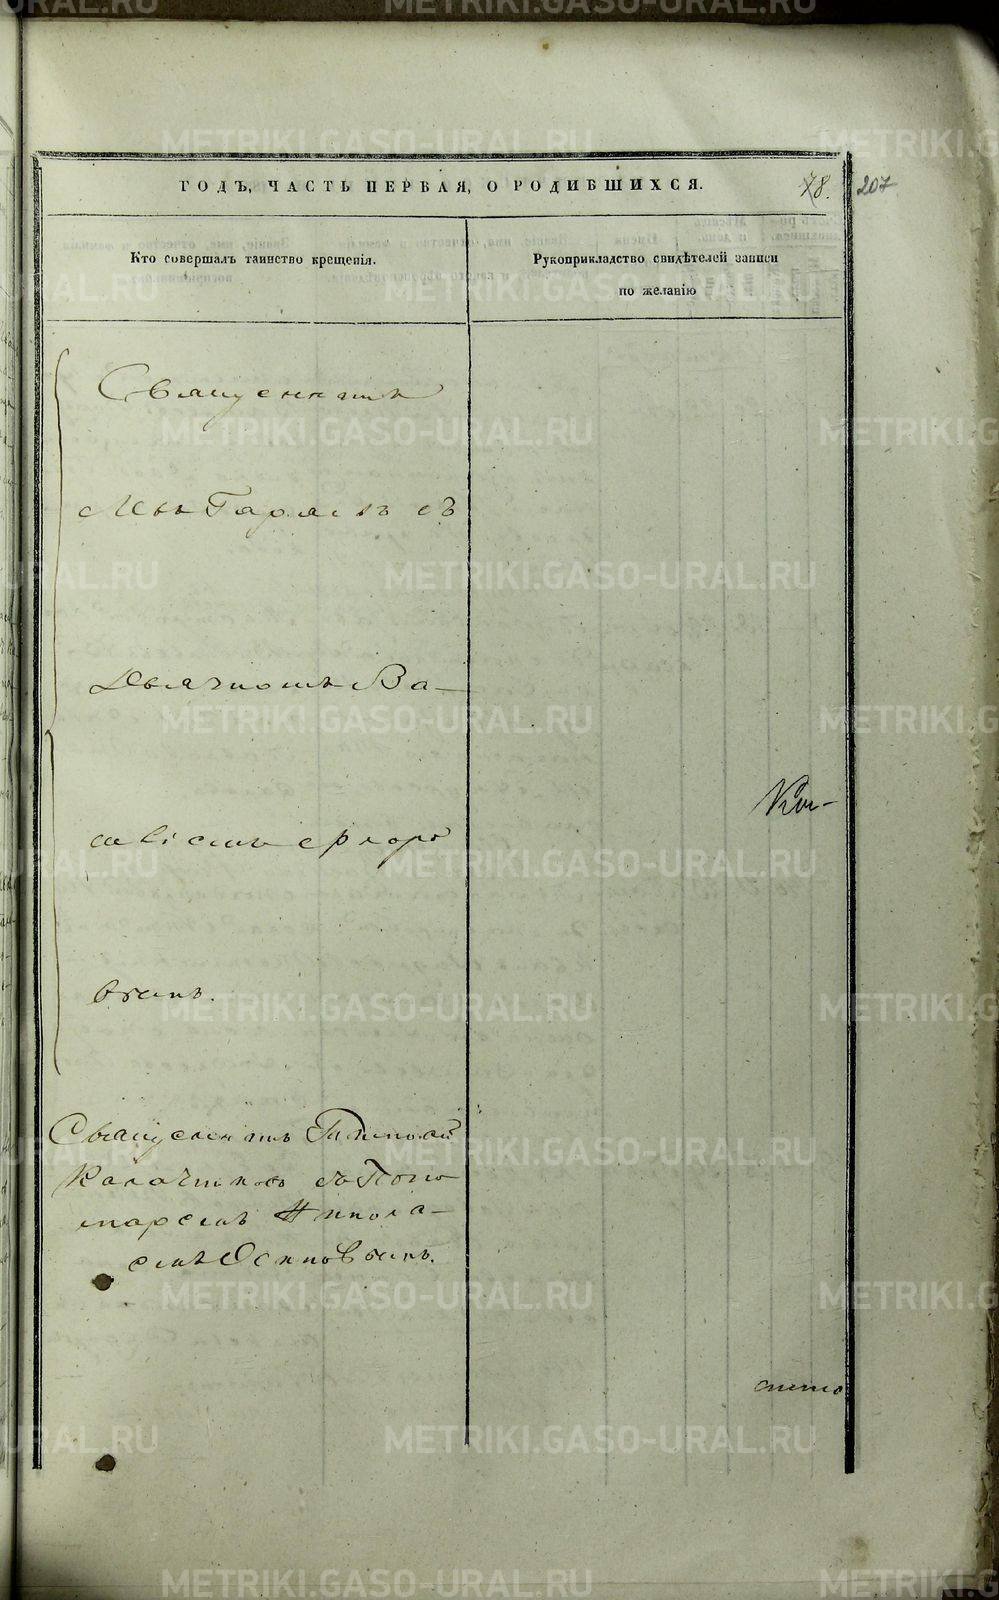 METRIKI.GASO-URAL.RU
ГОДЪ, ЧАСТЬ ПЕРВАЯ, О РОДИВШИХСЯ.
78. 207
Кто совершалъ таинство крещенія.
Рукоприкладство свидѣтелей записи
по желанію
Священникъ
съ
Дьячкомъ Ва-
силіемъ Флоро
вымъ.
Священникъ Тимофей
Калачниковъ съ Поно
маремъ Никола-
емъ Осиповымъ.